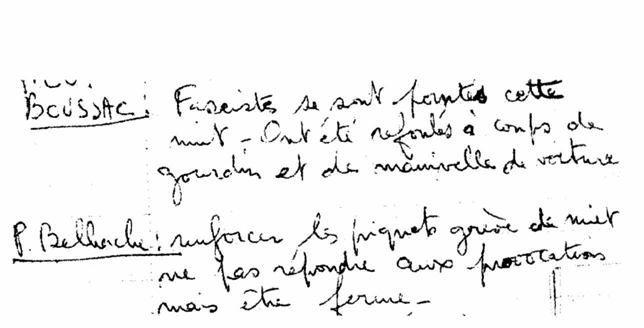 BOUSSAC : Fascistes se sont pointés cette
nuit - Ont été refoulés à coups de
gourdin et de manivelle de voiture
P. Belhache : renforcer les piquets grève de nuit
ne pas répondre aux provocations
mais être ferme -